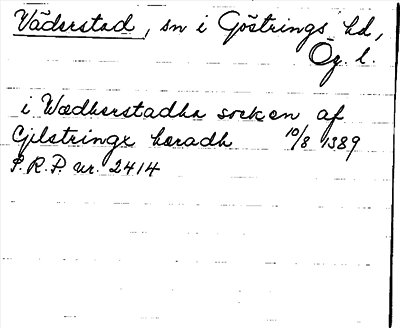 Väderstad, sn i Göstrings hd,
Ög. l.
i Wædherstadha socken af
Gilstringx hæradh 10/8 1389
P.R.P. nr. 2414